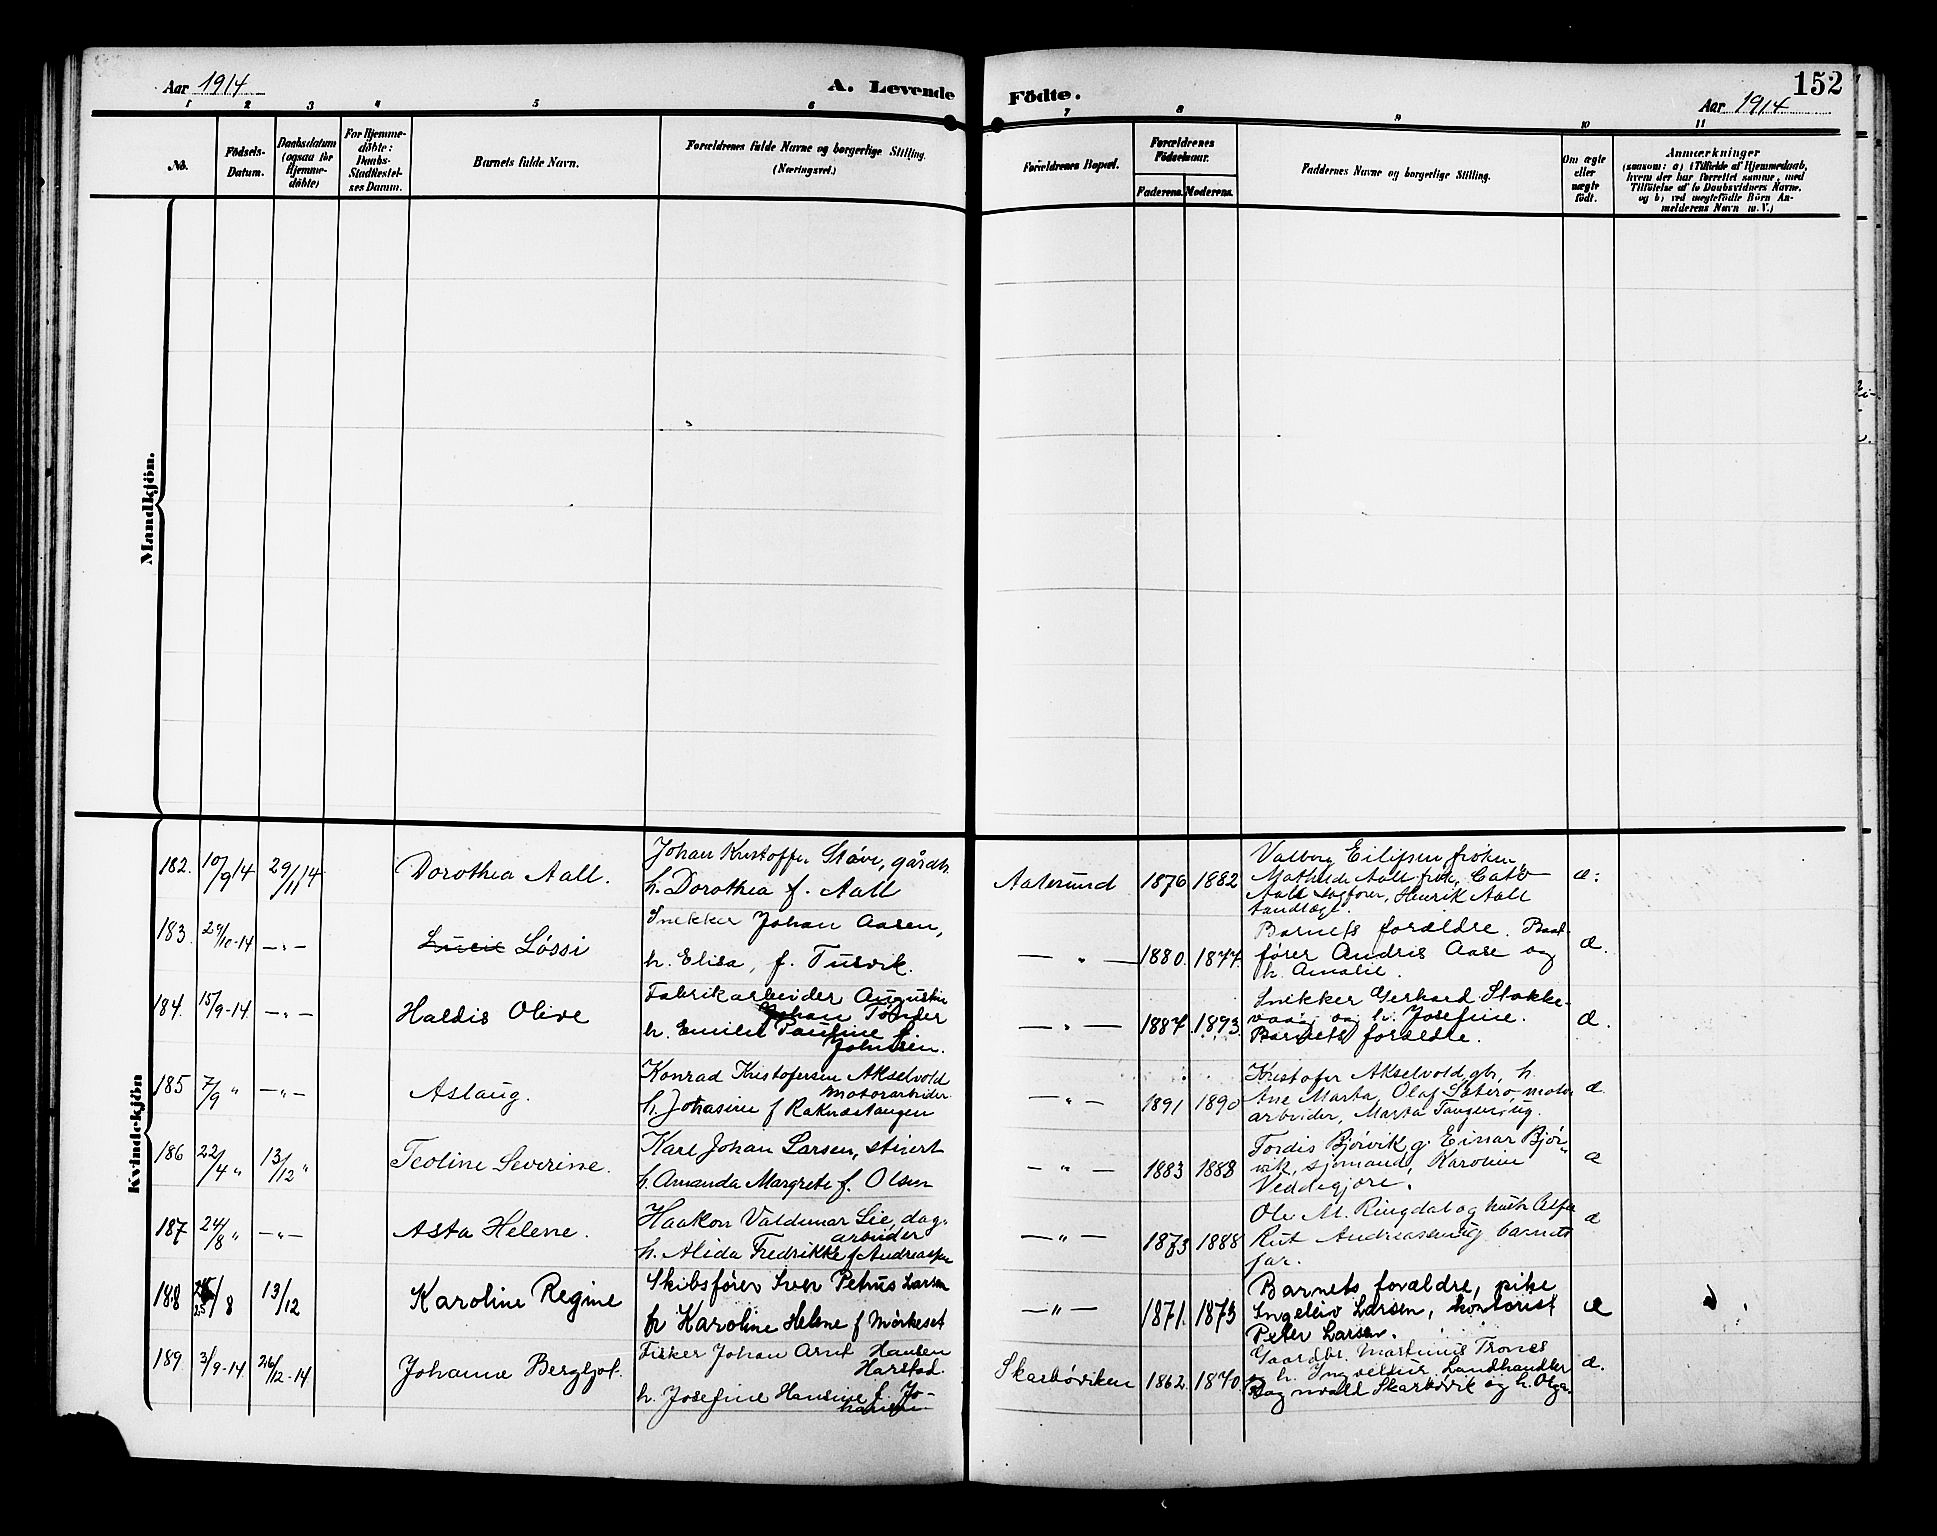 Aar 1914
A. Levende Födte.
152
Aar 1914
1 2 3 4 5 6 7 8 9 10 11
No.
Födsels-
Datum.
Daabsdatum
(ogsaa for
Hjemme-
döbte)
For Hjemme-
döbte:
Daabs-
Stadfæstel-
ses Datum.
Barnets fulde Navn.
Forældrenes fulde Navne og borgerlige Stilling.
(Næringsvei.)
Forældrenes Bopæl.
Forældrenes
Födselsaar.
Faderens. Moderens.
Faddernes Navne og borgerlige Stilling.
Om ægte
eller
uægte
födt.
Anmærkninger
(saasom: a) i Tilfælde af Hjemmedaab,
hvem der har forrettet samme, med
Tilföielse af to Daabsvidners Navne.
og b) ved uegtefödte Börn An-
melderens Navn m.V.)
Mandkjön.
Kvindekjön
182. 10/9 14 29/11 14
Dorothea Aall.
Johan Kristoffer Støve, gårdb.
h. Dorothea f. Aall
Aalesund
1876 1882
Valborg Eilifsen frøken,
Mathilde Aall frk, Cato
Aall sagfører, Henrik Aall
tandlæge.
æ.
183. 29/10-14 —"—
Lucie Løssi
Snekker Johan Aasen,
h. Elisa, f. Tusvik.
— " —
1880. 1877.
Barnets forældre. Baad-
fører Andris Aase og
h. Amalie.
æ.
184. 15/9-14 —"—
Haldis Olive
Fabrikarbeider Augustin
Johan Tønder
h. Emilie Pauline f.
Johnsen.
— " —
1887. 1893.
Snekker Gerhard Stokke-
vaag og h. Josefine.
Barnets forældre.
æ.
185 7/9 " —"—
Aslaug.
Konrad Kristofersen Akselvold
motorarbeider
h. Johasine f Raknæstangen
— " —
1891 1890
Kristofer Akselvold gb, h.
Ane Marta, Olaf Sætero motor
arbeider, Marta Tangen, ug.
æ
186 22/4 " 13/12 "
Teoline Severine.
Karl Johan Larsen, stuert
h. Amanda Margrete f. Olsen
— " —
1883 1888
Tordis Bjørvik g. Einar Bjør-
vik, sjømand, Karoline
Veddegjære.
æ
187 24/8 " —"—
Asta Helene.
Haakon Valdemar Lie, dag-
arbeider
h. Alida Fredrikke f Andreassen
— " —
1873 1888
Ole M. Ringdal og hustr Alfa
Rut Andreassen ug. barnets
far.
æ
188 25/8 13/12
Karoline Regine
Skibsfører Iver Petrus Larsen
h Karoline Helene f Mørkeset
—"—
1871. 1873
Barnets forældre, pike
Ingeleiv Larsen, kontorist
Peter Larsen.
æ
189. 3/9-14 26/12-14
Johanna Bergljot.
Fisker Johan Arnt Hansen
Harstad.
h. Josefine Hansine f. Jo-
hansen
Skarbøviken
1862. 1870
Gaardbr. Martinus Trones
og h. Ingveldur, Landhandler
Ragnvald Skarbøvik og h. Olga.
æ.